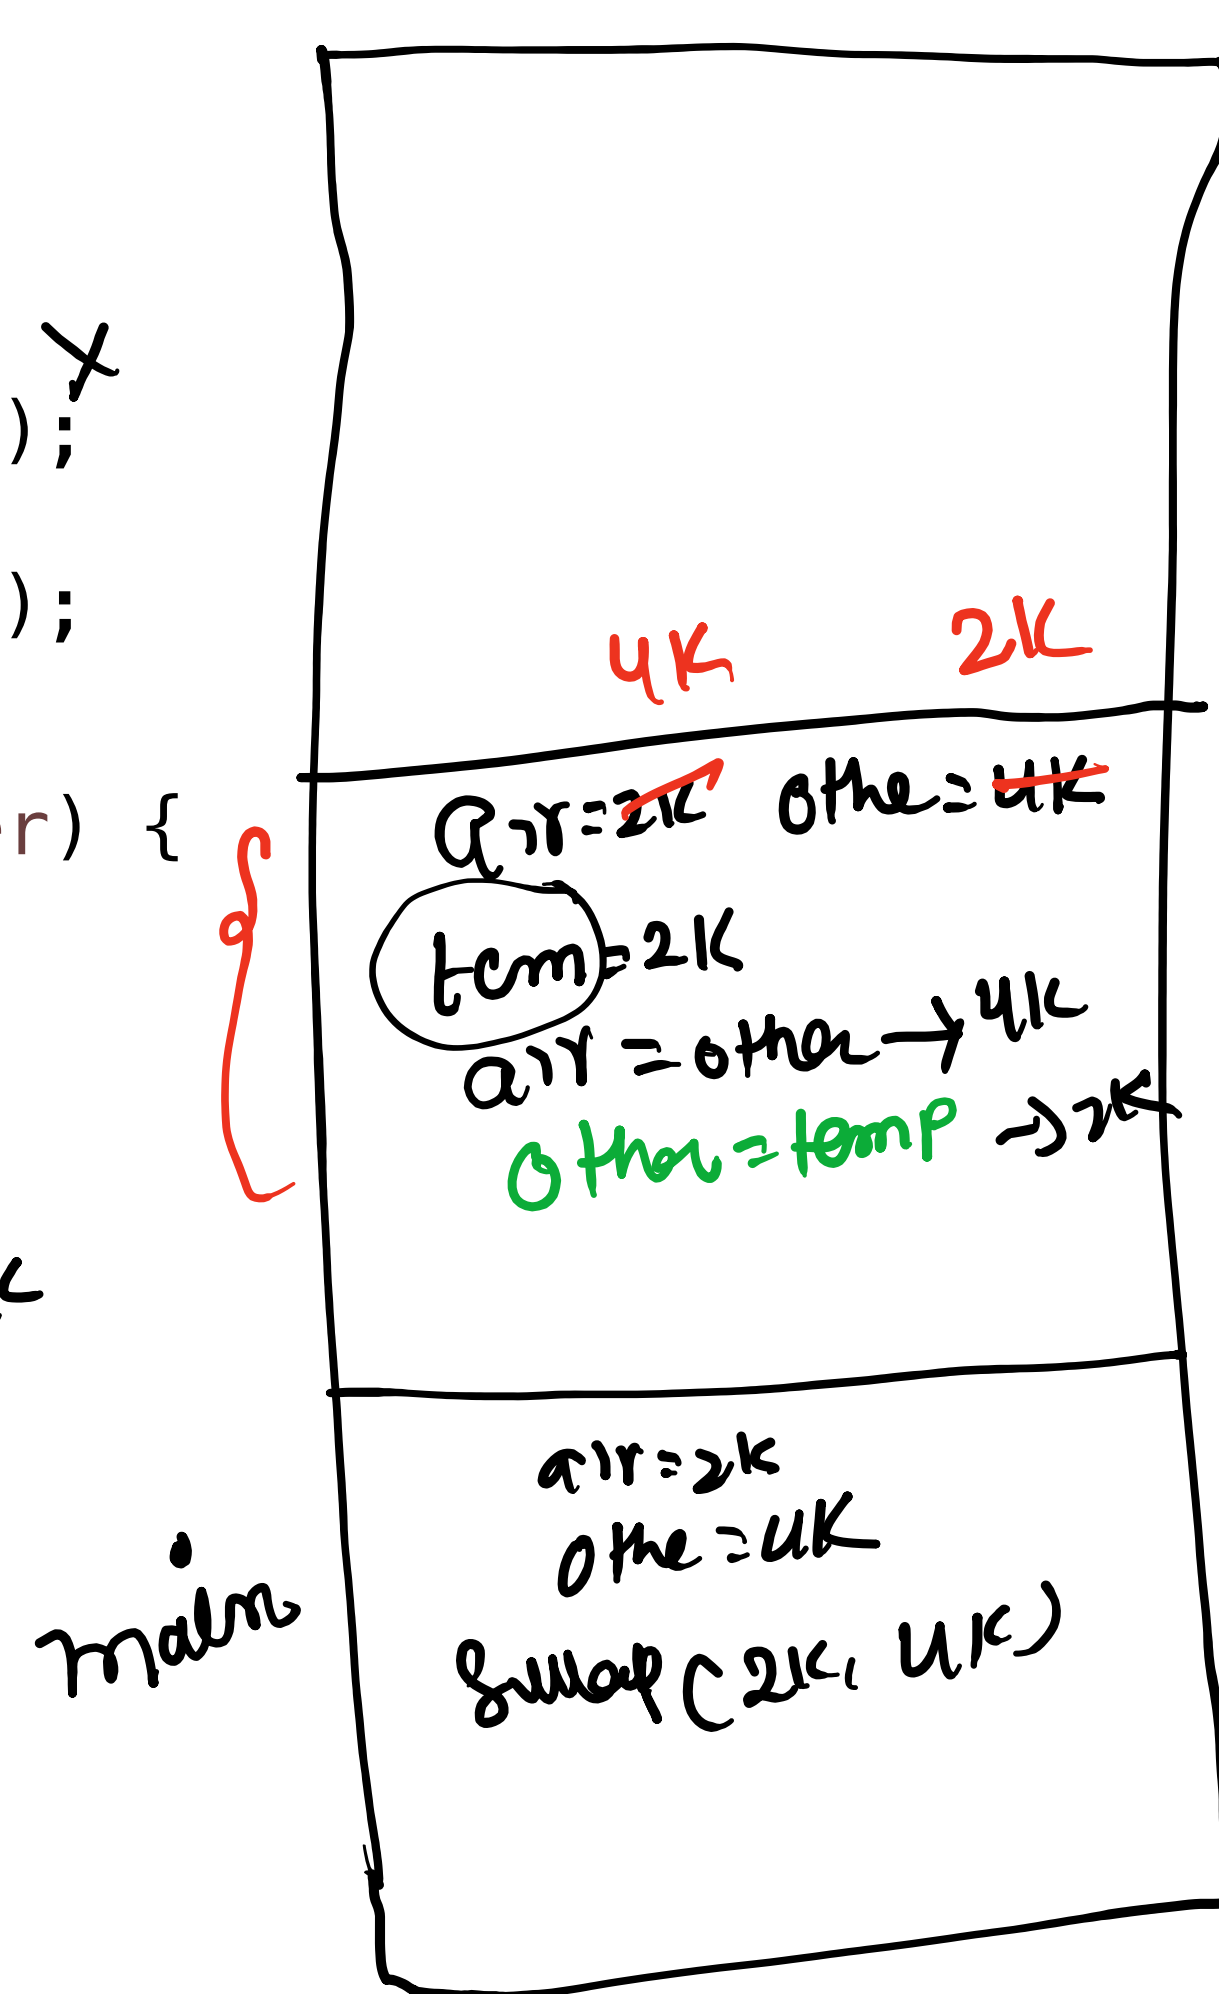 X
);
);
4K 2K
r) {
arr=2K othe=4K
tem=2K
arr=other→4K
other=temp→2K
arr=2K
othe=4K
main
Swap(2K, 4K)